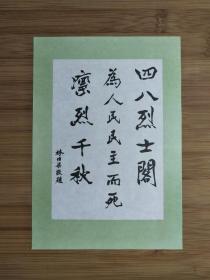 四八烈士閣
為人民民主而死
懍烈千秋
林伯渠敬題